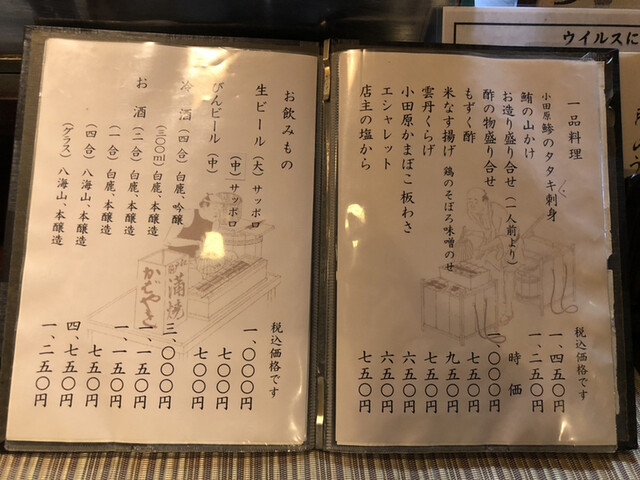 ウイルスに
一品料理
税込価格です
小田原鯵のタタキ刺身 一、四五〇円
鮪の山かけ 一、二五〇円
お造り盛り合せ(一人前より) 時価
酢の物盛り合せ 一、〇〇〇円
もずく酢 七五〇円
米なす揚げ 鶏のそぼろ味噌のせ 九五〇円
雲丹くらげ 七五〇円
小田原かまぼこ板わさ 六五〇円
エシャレット 六五〇円
店主の塩から 七五〇円
お飲みもの
税込価格です
生ビール(大)サッポロ 一、〇〇〇円
(中)サッポロ 七〇〇円
びんビール(中) 七〇〇円
冷酒(四合)白鹿、吟醸 三、〇〇〇円
(三〇〇ml)白鹿、本醸造 一、一五〇円
お酒(二合)白鹿、本醸造 一、一五〇円
(一合)白鹿、本醸造 七五〇円
(四合)八海山、本醸造 四、七五〇円
(グラス)八海山、本醸造 一、二五〇円
蒲焼
かばやき